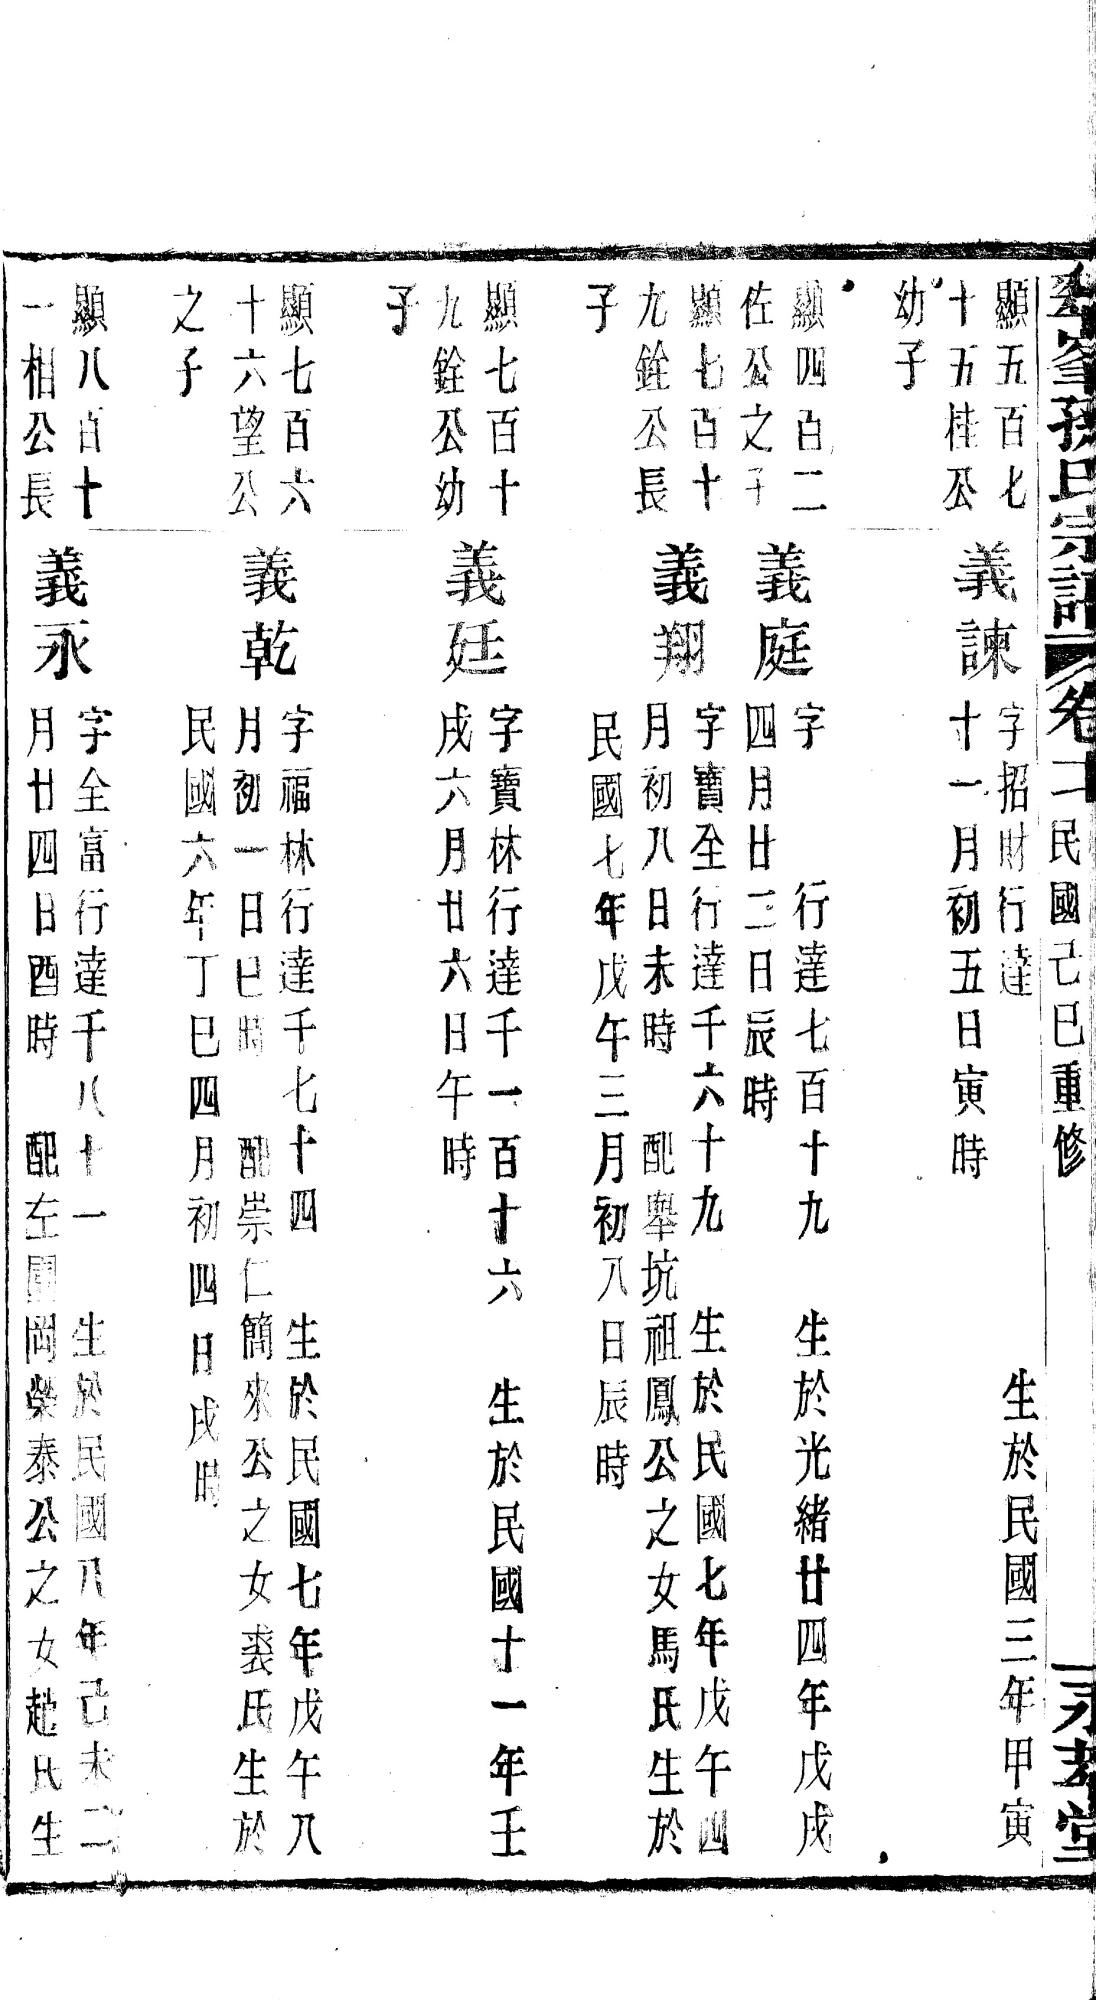 孫氏宗譜 卷 民國己巳重修 永孝堂
顯五百七
十五桂公
幼子
義諫
字招財行達 生於民國三年甲寅
十一月初五日寅時
顯四百二
佐公之子
義庭
字 行達七百十九 生於光緒廿四年戊戌
四月廿二日辰時
顯七百十
九銓公長
子
義翔
字寶全行達千六十九 生於民國七年戊午四
月初八日未時 配舉坑祖鳳公之女馬氏生於
民國七年戊午三月初八日辰時
顯七百十
九銓公幼
子
義廷
字寶林行達千一百十六 生於民國十一年壬
戌六月廿六日午時
顯七百六
十六望公
之子
義乾
字福林行達千七十四 生於民國七年戊午八
月初一日巳時 配崇仁簡來公之女裘氏生於
民國六年丁巳四月初四日戌時
顯八百十
一相公長
義永
字全富行達千八十一 生於民國八年己未二
月廿四日酉時 配左圍岡榮泰公之女趙氏生